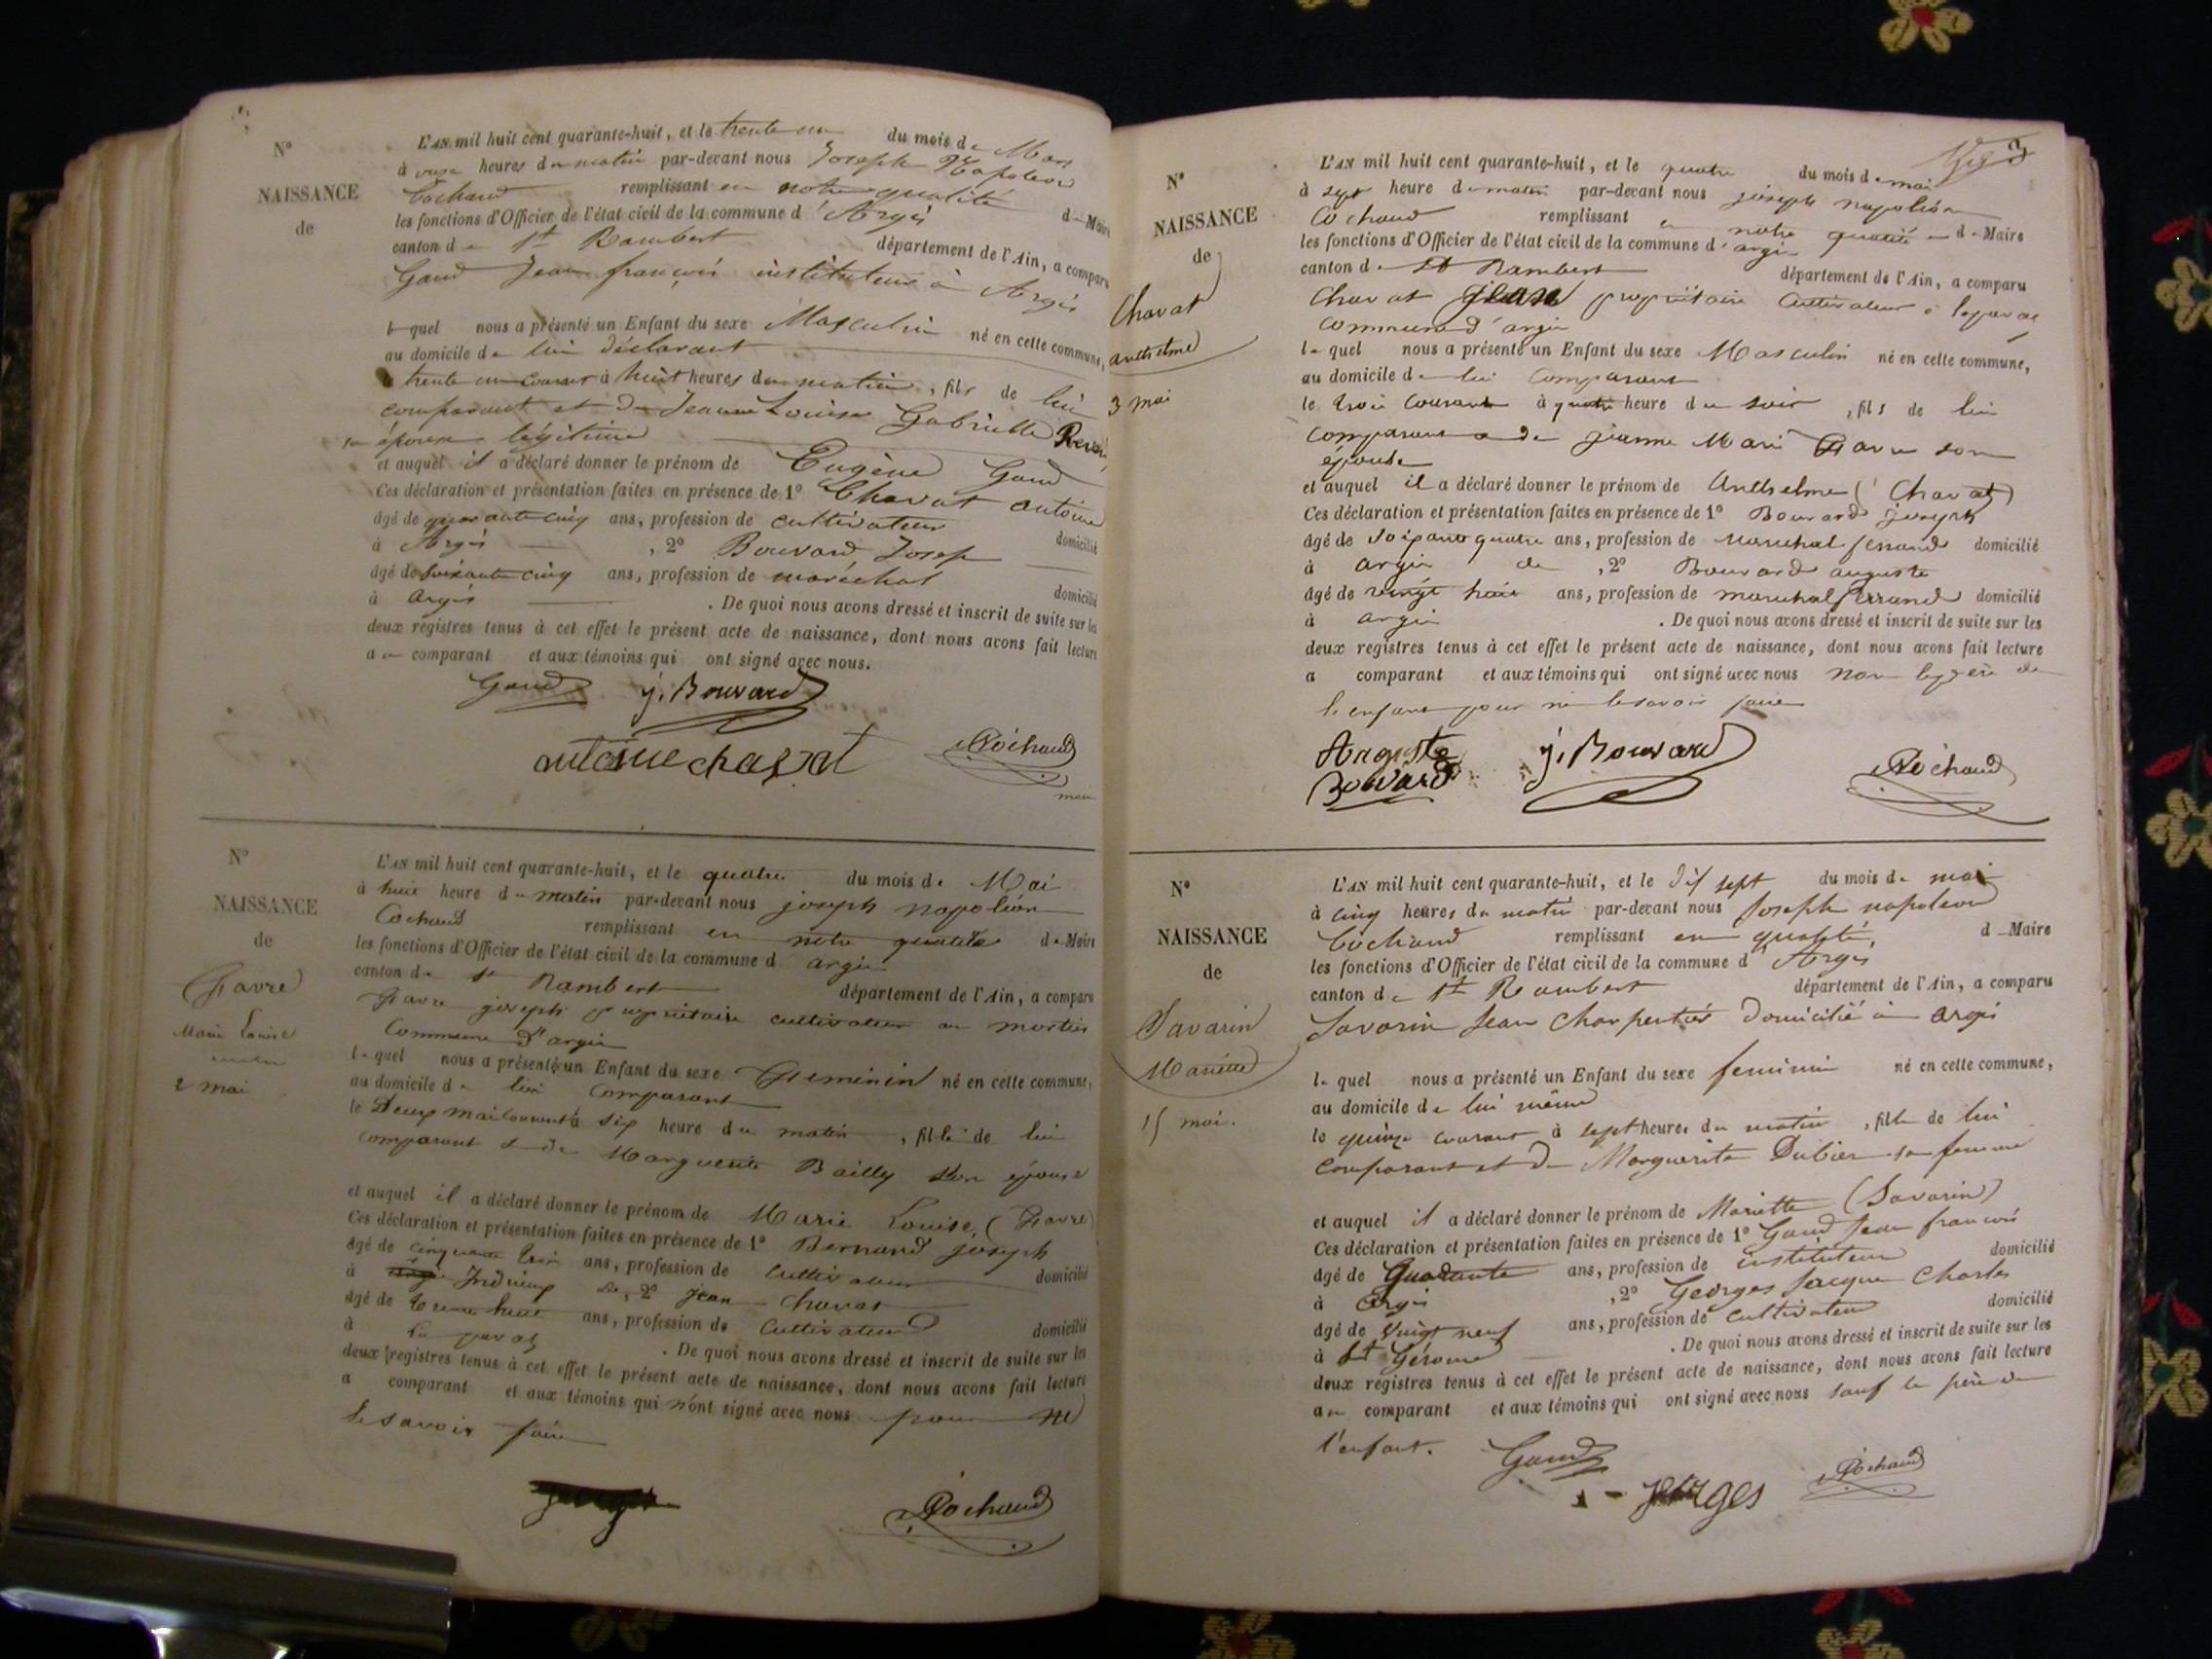 N°
NAISSANCE
de
L'AN mil huit cent quarante-huit, et le trente un du mois de Mars
à onze heures du matin par-devant nous Joseph Napoléon
Cochaud remplissant en notre qualité d Maire
les fonctions d'Officier de l'état civil de la commune d'Argis
canton de St Rambert département de l'Ain, a comparu
Gaud Jean françois instituteur à Argis
lequel nous a présenté un Enfant du sexe Masculin né en cette commune,
au domicile de lui déclarant
trente un courant à huit heures du matin, fils de lui
comparant et de Jeanne Louise Gabrielle
sa épouse légitime
et auquel il a déclaré donner le prénom de Eugène Gaud
Ces déclaration et présentation faites en présence de 1° Chavat antoine
âgé de quarante cinq ans, profession de cultivateur domicilié
à Argis, 2° Bouvard Josep
âgé de soixante cinq ans, profession de maréchal domicilié
à argis. De quoi nous avons dressé et inscrit de suite sur les
deux registres tenus à cet effet le présent acte de naissance, dont nous avons fait lecture
au comparant et aux témoins qui ont signé avec nous.
Gaud j. Bouvard
antoine chavat Cochaud
N°
NAISSANCE
de
Favre
Marie Louise
2 mai
L'AN mil huit cent quarante-huit, et le quatre du mois de Mai
à huit heure du matin par-devant nous joseph napoléon
Cochaud remplissant en notre qualité de Maire
les fonctions d'Officier de l'état civil de la commune d argis
canton de st Rambert département de l'Ain, a comparu
Favre joseph propriétaire cultivateur au mortier
Commune d'argis
lequel nous a présenté un Enfant du sexe Feminin né en cette commune,
au domicile de lui Comparant
le Deux mai courant à six heure du matin, fille de lui
comparant et de Marguerite Bailly son épouse
et auquel il a déclaré donner le prénom de Marie Louise (Favre)
Ces déclaration et présentation faites en présence de 1° Bernard joseph
âgé de cinquante trois ans, profession de Cultivateur domicilié
à Indrieux de, 2° jean Chavat
âgé de trente huit ans, profession de Cultivateur domicilié
à . De quoi nous avons dressé et inscrit de suite sur les
deux registres tenus à cet effet le présent acte de naissance, dont nous avons fait lecture
a comparant et aux témoins qui n'ont signé avec nous pour ne
le savoir faire
Cochaud
N°
NAISSANCE
de
Chavat
anthelme
3 mai
L'AN mil huit cent quarante-huit, et le quatre du mois de mai
à sept heure du matin par-devant nous joseph napoléon
Cochaud remplissant en notre qualité de Maire
les fonctions d'Officier de l'état civil de la commune d'argis
canton de St Rambert département de l'Ain, a comparu
Chavat jean propriétaire Cultivateur à
Commune d'argis
lequel nous a présenté un Enfant du sexe Masculin né en cette commune,
au domicile de lui Comparant
le trois Courant à quatre heure du soir, fils de lui
Comparant et de jeanne Marie Favre son
épouse
et auquel il a déclaré donner le prénom de Anthelme (Chavat)
Ces déclaration et présentation faites en présence de 1° Bouvard joseph
âgé de soixante quatre ans, profession de marechal ferrand domicilié
à argis de, 2° Bouvard auguste
âgé de vingt huit ans, profession de marechal ferrand domicilié
à argis. De quoi nous avons dressé et inscrit de suite sur les
deux registres tenus à cet effet le présent acte de naissance, dont nous avons fait lecture
a comparant et aux témoins qui ont signé avec nous non le père de
l'enfant pour ne le savoir faire
Auguste Bouvard j. Bouvard Cochaud
N°
NAISSANCE
de
Savarin
Mariette
15 mai.
L'AN mil huit cent quarante-huit, et le dix sept du mois de mai
à cinq heures du matin par-devant nous Joseph napoleon
Cochaud remplissant en qualité, d Maire
les fonctions d'Officier de l'état civil de la commune d'Argis
canton de St Rambert département de l'Ain, a comparu
Savarin Jean Charpentier domicilié à argis
lequel nous a présenté un Enfant du sexe feminin né en cette commune,
au domicile de lui même
le quinze courant à sept heures du matin, fille de lui
comparant et de Marguerite Dubier sa femme
et auquel il a déclaré donner le prénom de Mariette (Savarin)
Ces déclaration et présentation faites en présence de 1° Gaud Jean françois
âgé de Quarante ans, profession de instituteur domicilié
à argis, 2° Georges Jacque Charles
âgé de vingt neuf ans, profession de cultivateur domicilié
à St Gérome. De quoi nous avons dressé et inscrit de suite sur les
deux registres tenus à cet effet le présent acte de naissance, dont nous avons fait lecture
au comparant et aux témoins qui ont signé avec nous sauf le père de
l'enfant. Gaud
Cochaud